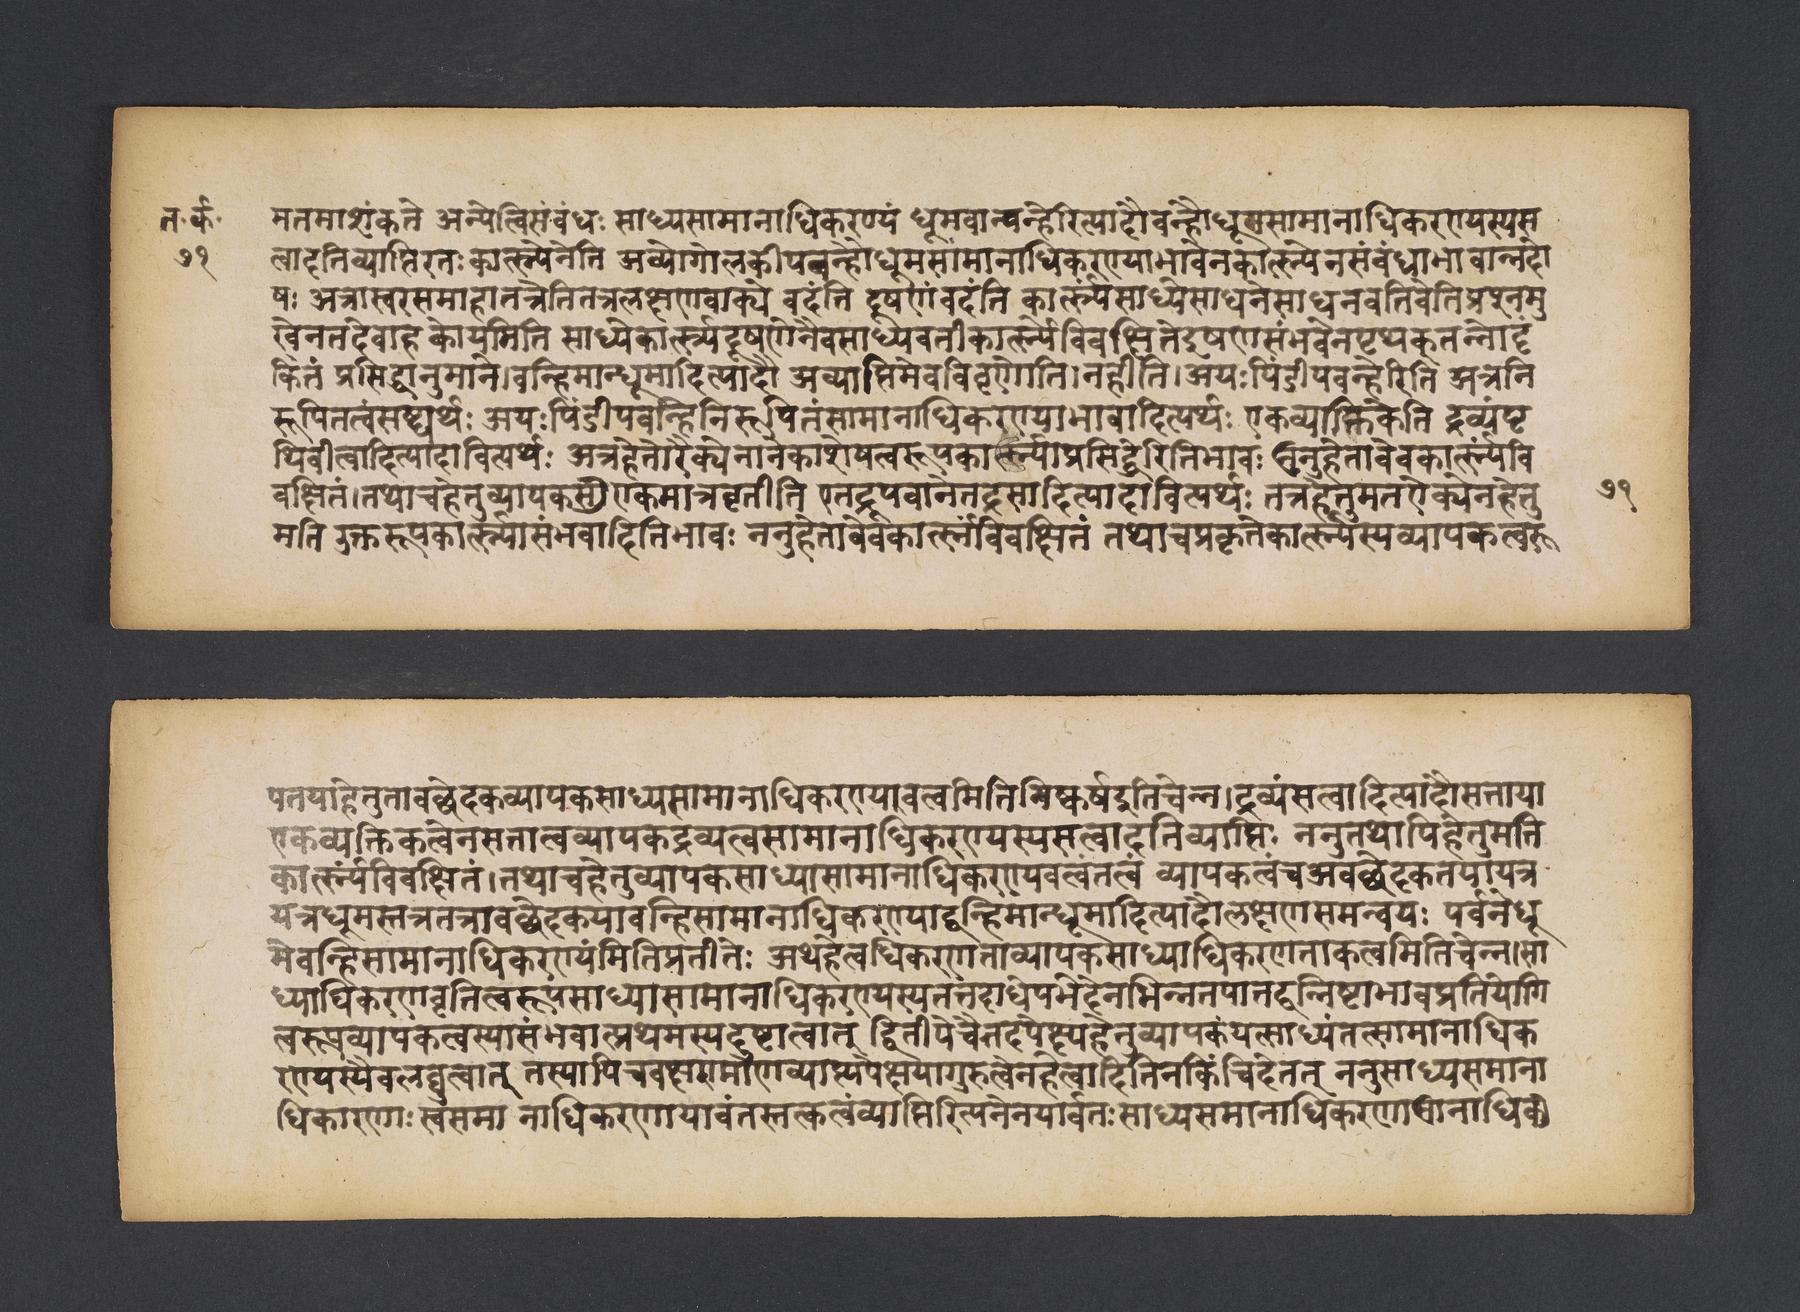 त॰र्क॰
७१
मतमाशंकते अन्येत्विसंबंधः साध्यसामानाधिकरण्यं धूमवान्वन्हेरित्यादौवन्हौधूमसामानाधिकरण्यस्यस
त्वादतिव्याप्तिरतःकार्त्स्न्येनेति अव्योगोलकीपवन्हौधूमसामानाधिकरण्याभावेनकार्त्स्न्येनसंबंधाभावान्नदो
षः अत्रास्वरसमाहातत्रैतितत्रलक्षणवाक्ये वदंति दूषणंवदंति कार्त्स्न्यंसाध्येसाधनेसाधनवतिवेतिप्रपूनमु
खेनतदेवाह कोयमिति साध्येकार्त्स्न्यदूषणेनैवसाध्यवतीकार्त्स्न्येविवक्षितेदुषणसंभवेनपृथकूतन्नोदं
कितं प्रसिद्धानुमाने।वन्हिमान्धूमादित्यादौ अव्याप्तिमेवविवृणोति।नहीति।अयःपिंडीपवन्हेरिति अत्रनि
रूपितत्वंसष्ट्यर्थः अयःपिंडीपवन्हिनिरूपितंसामानाधिकरण्याभावादित्यर्थः एकव्यक्तिकेति द्रव्यंपृ
थिवीत्वादित्यादावित्यर्थः अत्रहेतोरैक्येनानेकाशेषत्वरूपकार्त्स्न्याप्रसिद्धेरितिभावः ननुहेतावेवकार्त्स्न्यंवि
वक्षितं।तथाचहेतुव्यापकस्यीएकमात्रवृतीति एतद्रूपवानेतद्रसादित्यादावित्यर्थः तत्रहेतुमतऐक्येनहेतु
७१
मति उक्तरूपकार्त्स्न्यासंभवादितिभावः ननुहेतावेवकार्त्स्न्यंविवक्षितं तथाचप्रकृतेकार्त्स्न्यस्यव्यापकत्वरू
पतयाहेतुतावछेदकव्यापकसाध्यसामानाधिकरण्यावत्वमितिनिष्कर्षइतिचेन्न।द्रव्यंसत्वादित्यादौसत्ताया
एकव्यक्तिकत्वेनसत्तात्वव्यापकद्रव्यत्वसामानाधिकरण्यस्यसत्वादतिव्याप्तिः ननुतथापिहेतुमति
कार्त्स्न्यंविवक्षितं।तथाचहेतुव्यापकसाध्यासामानाधिकरण्यवत्वंतत्वं व्यापकत्वंचअवछेदकतयायत्र
यत्रधूमस्तत्रतत्रावछेदकयावन्हिसामानाधिकरण्याद्वन्हिमान्धूमादित्यादौलक्षणसमन्वयः पर्वतेधू
मेवन्हिसामानाधिकरण्यंमितिप्रतीतेः अथहेत्वधिकरणताव्यापकसाध्याधिकरणताकत्वमितिचेन्न।सा
ध्याधिकरणवृतित्वरूपंसाध्यासामानाधिकरण्यस्यतत्तदाधेपभेदेनभिन्नतपातद्वन्निष्टाभावप्रतियोगि
त्वरूपव्यापकत्वस्यासंभवात्प्रथमस्यदुष्टात्वात् द्वितीपेचैतदपेक्ष्यहेतुव्यापकंयत्साध्यंतत्सामानाधिक
रण्यस्यैवलघुत्वात् तस्यापिचवक्षणमाणव्याप्त्यपेक्षयागुरुत्वेनहेत्वादितिनकिंचिदेतत् ननुसाध्यसमाना
धिकारणाः स्वंसमा नाधिकरणायावंतस्तत्कत्वंव्याप्तिरित्पनेनयार्वतःसाध्यसमानाधिकरणामानाधिक